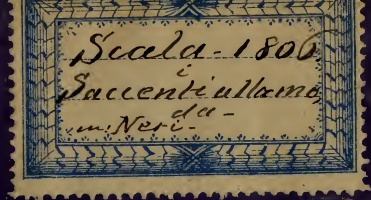 Scala - 1806
i
Saccenti alla moda
m: Neri -